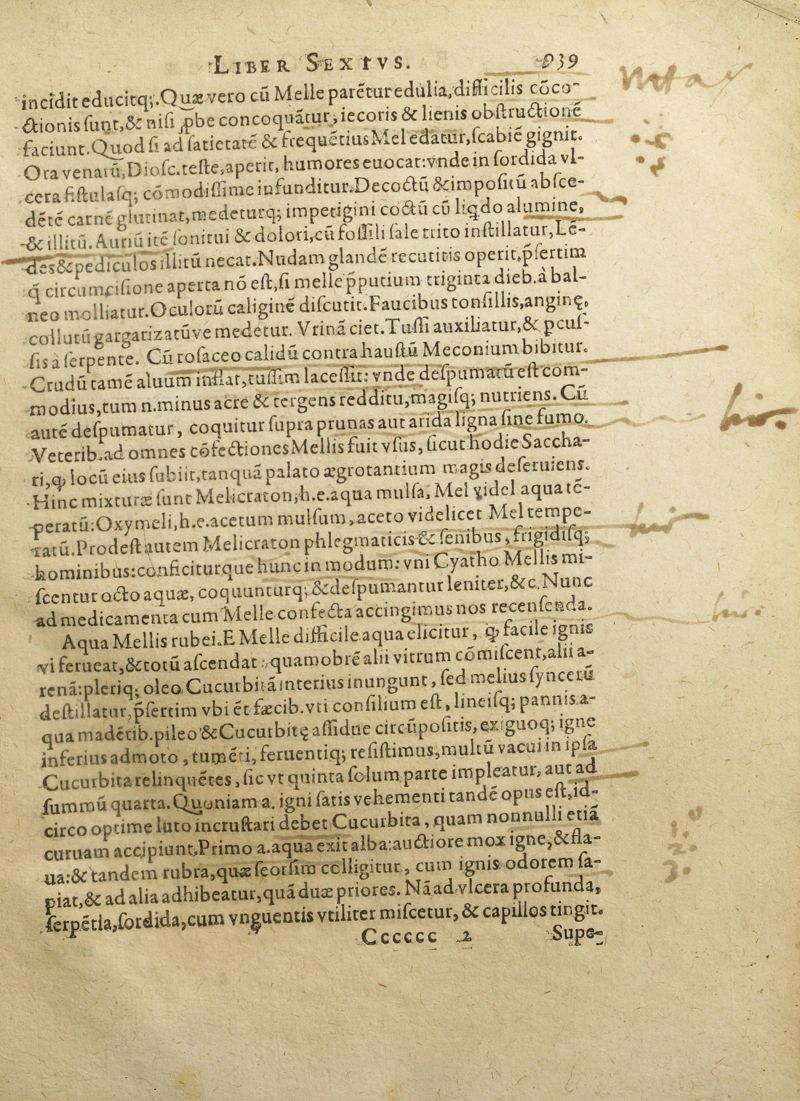 LIBER SEXTVS. 939
incidit educitq;. Quæ vero cū Melle parētur edulia, difficilis cōco-
ctionis sunt, & nisi ꝓbe concoquātur, iecoris & lienis obstructionē
faciunt. Quod si ad satietatē & frequētius Mel edatur, scabiē gignit.
Ora venarū, Diosc. teste, aperit, humores euocat: vnde in sordida vl-
cera fistulasq; cōmodissime infunditur. Decoctū & impositū absce-
dētē carnē glutinat, medeturq; impetigini coctū cū liqdo alumine,
& illitū. Auriū itē sonitui & dolori, cū fossili sale trito instillatur, Lē-
des & pediculos illitū necat. Nudam glandē recutitis operit, p̄sertim
q̄ circumcisione aperta nō est, si melle p̄putium triginta dieb. a bal-
neo molliatur. Oculorū caliginē discutit. Faucibus tonsillis, anginę,
collutū gargarizatūve medetur. Vrinā ciet. Tussi auxiliatur, & ꝑcus-
sis a serpente. Cū rosaceo calidū contra haustū Meconium bibitur.
Crudū tamē aluum inflat, tussim lacessit: vnde despumatū est com-
modius, tum n. minus acre & tergens redditu, magisq; nutriens. Cū
autē despumatur, coquitur supra prunas aut arida ligna sine fumo.
Veterib. ad omnes cōfectiones Mellis fuit vsus, sicut hodie Saccha-
ri, ꝙ locū eius subiit, tanquā palato ægrotantium magis deseruiens.
Hinc mixturæ sunt Melicraton, h.e. aqua mulsa, Mel videl aqua tē-
peratū: Oxymeli, h.e. acetum mulsum, aceto videlicet Mel tempe-
ratū. Prodest autem Melicraton phlegmaticis & senibus, frigidisq;
hominibus: conficiturque hunc in modum: vni Cyatho Mellis mi-
scentur octo aquæ, coquunturq; & despumantur leniter, &c. Nunc
ad medicamenta cum Melle confecta accingimus nos recensenda.
Aqua Mellis rubei. E Melle difficile aqua elicitur, ꝙ facile ignis
vi ferueat, & totū ascendat: quamobrē alii vitrum cōmiscent, alii a-
renā: pleriq; oleo Cucurbitā interius inungunt, sed melius syncerū
destillatur, p̄sertim vbi ēt fæcib. vti consilium est, lineisq; pannis a-
qua madētib. pileo & Cucurbitę assidue circūpositis, exiguoq; igne
inferius admoto, tumēti, feruentiq; resistimus, multū vacui in ipsa
Cucurbita relinquētes, sic vt quinta solum parte impleatur, aut ad
summū quarta. Quoniam a. igni satis vehementi tandē opus est, id-
circo optime luto incrustari debet Cucurbita, quam nonnulli etiā
curuam accipiunt. Primo a. aqua exit alba: auctiore mox igne, & fla-
ua: & tandem rubra, quæ seorsim colligitur, cum ignis odorem sa-
piat, & ad alia adhibeatur, quā duæ priores. Nā ad vlcera profunda,
serpētia, sordida, cum vnguentis vtiliter miscetur, & capillos tingit.
Cccccc 2 Supe-
1.
2.
3.